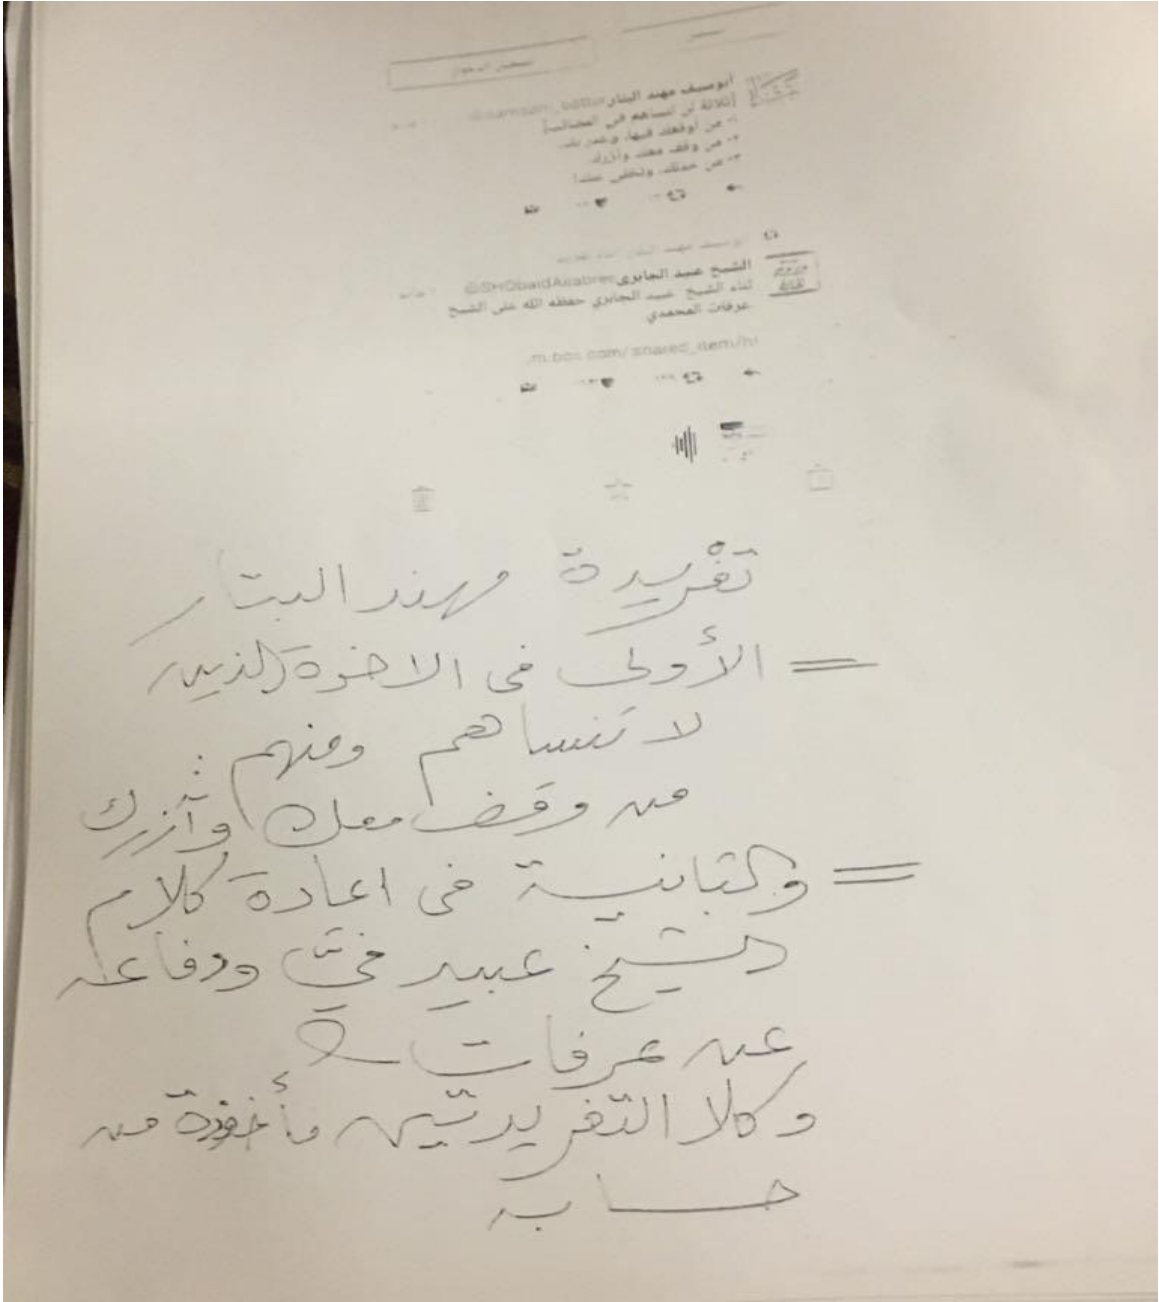 تسجيل الدخول
أبو سيف مهند البتار
[ثلاثة لن تنساهم في المصائب]
١- من أوقعك فيها،
٢- من وقف معك وآزرك
٣- من خذلك، وتخلى عنك!
أبو سيف مهند البتار
الشيخ عبيد الجابري@
لقاء الشيخ عبيد الجابري حفظه الله على الشيخ
عرفات المحمدي
m.box.com/shared_item/h
تغريدة مهند البتار
= الأولى في الاخوة الذين
لا تنساهم ومنهم :
من وقف معك وآزرك
= والثانية في اعادة كلام
الشيخ عبيد فيّ ودفاعه
عن عرفات
وكلا التغريدتين مأخوذة من
حسابه